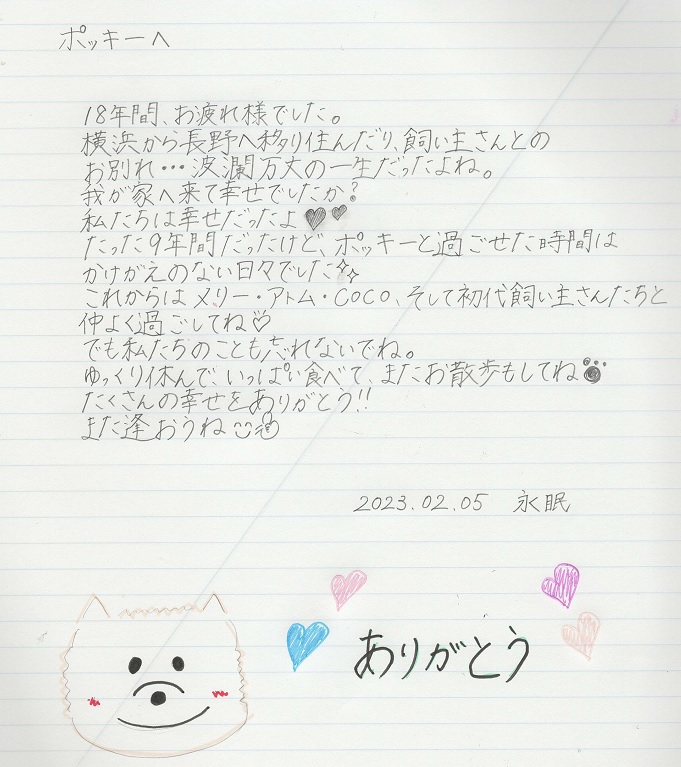 ポッキーへ
18年間、お疲れ様でした。
横浜から長野へ移り住んだり、飼い主さんとの
お別れ…波瀾万丈の一生だったよね。
我が家へ来て幸せでしたか?
私たちは幸せだったよ
たった9年間だったけど、ポッキーと過ごせた時間は
かけがえのない日々でした
これからはメリー・アトム・COCO、そして初代飼い主さんたちと
仲よく過ごしてね♡
でも私たちのことも忘れないでね。
ゆっくり休んで、いっぱい食べて、またお散歩もしてね
たくさんの幸せをありがとう!!
また逢おうね
2023.02.05 永眠
ありがとう